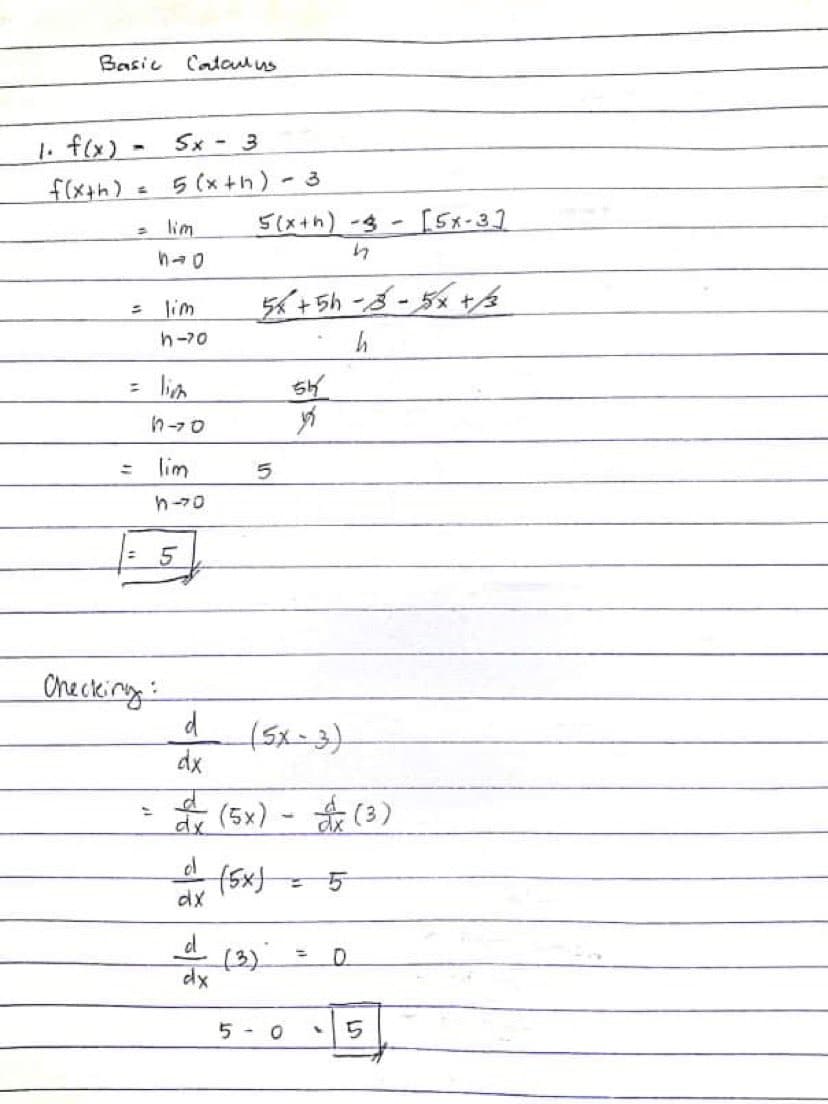 Basic Calculus
1. f(x) = 5x - 3
f(x+h) = 5(x+h) - 3
= lim 5(x+h) -3 - [5x-3]
h→0 h
= lim 5x + 5h - 3 - 5x + 3
h→0 h
= lim 5h
h→0 h
= lim 5
h→0
= 5
Checking:
d (5x - 3)
dx
= d/dx (5x) - d/dx (3)
d/dx (5x) = 5
d/dx (3) = 0
5 - 0 = 5